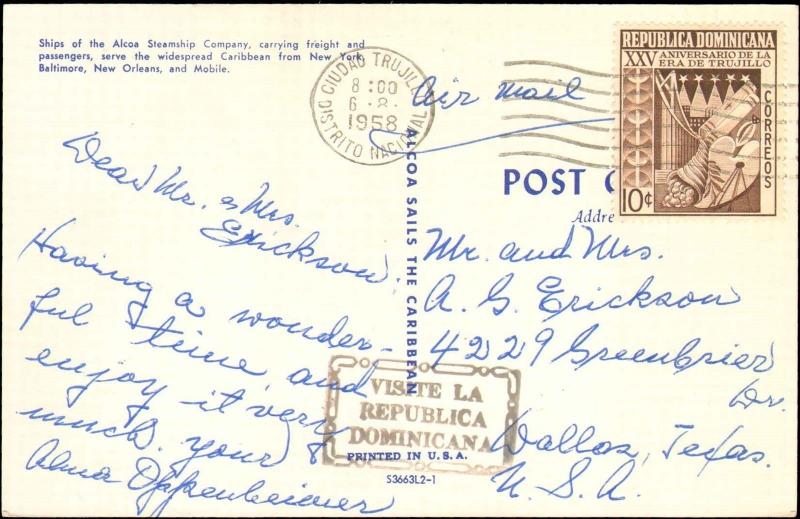 Ships of the Alcoa Steamship Company, carrying freight and
passengers, serve the widespread Caribbean from New York,
Baltimore, New Orleans, and Mobile.
CIUDAD TRUJILLO
8:00
6-8-
1958
DISTRITO NACIONAL
Air Mail
REPUBLICA DOMINICANA
XXV ANIVERSARIO DE LA
ERA DE TRUJILLO
CORREOS
10¢
POST C
Addre
Dear Mr. & Mrs.
Erickson,
Having a wonder-
ful time and
enjoy it very
much. your
Alma Oppenheimer
ALCOA SAILS THE CARIBBEAN
Mr. and Mrs.
A. G. Erickson
4229 Greenbrier
Dr.
Dallas, Texas.
U. S. A.
VISITE LA
REPUBLICA
DOMINICANA
PRINTED IN U. S. A.
S3663L2-1